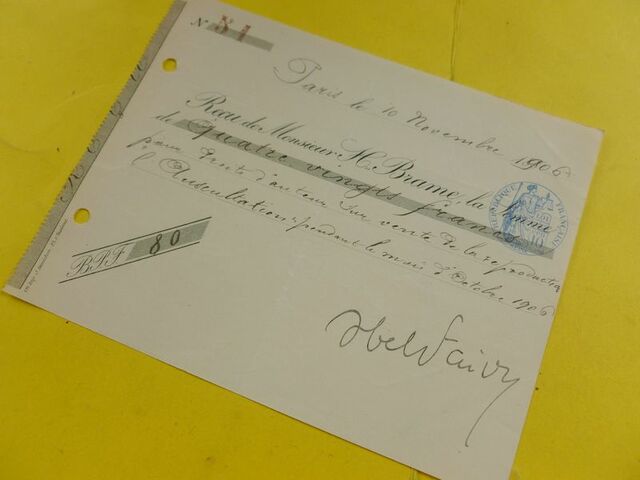 N° 51
Paris le 10 Novembre 1906
Reçu de Monsieur H. Brame, la somme
de quatre vingts francs
pour droits d'auteur sur vente de la reproduction
l'Auscultation, pendant le mois d'Octobre 1906
RÉPUBLIQUE FRANÇAISE
B.P.F. 80
Abel Faivre